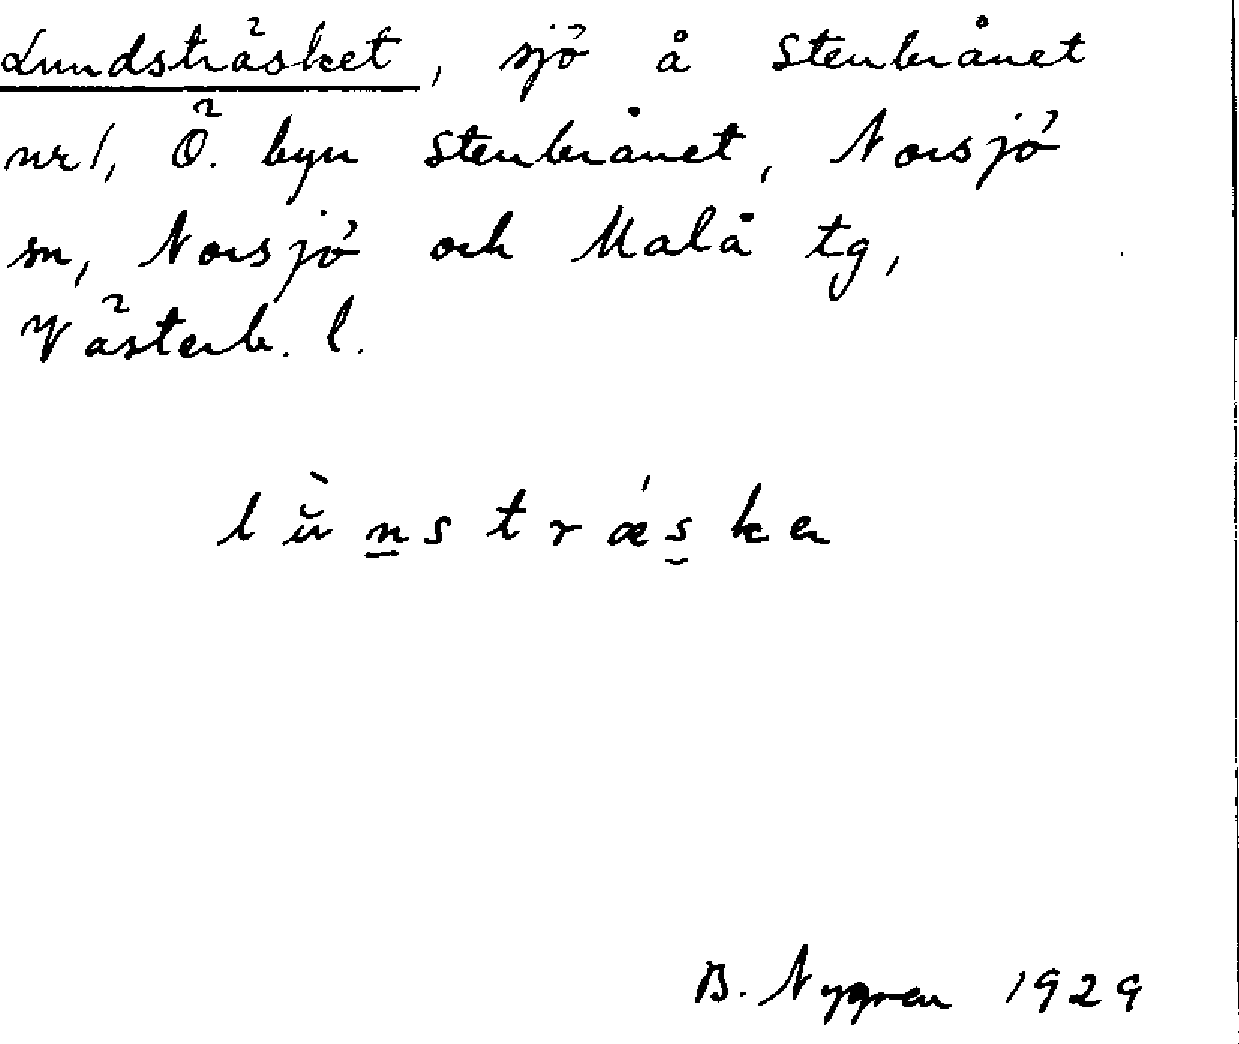 Lundsträsket, sjö å Stenbrånet
nr 1, Ö. byn Stenbrånet, Norsjö
sn, Norsjö och Malå tg,
Västerb. l.
lǜn̲sträs̮ka
B. Nygren 1929